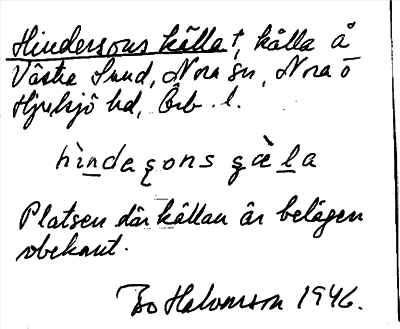 Hindersons källa †, källa å
Västra Sund, Nora sn, Nora o
Hjulsjö hd, Örb. l.
hìndaʂons ʂä̀la
Platsen där källan är belägen
obekant.
Bo Halvorsson 1946.